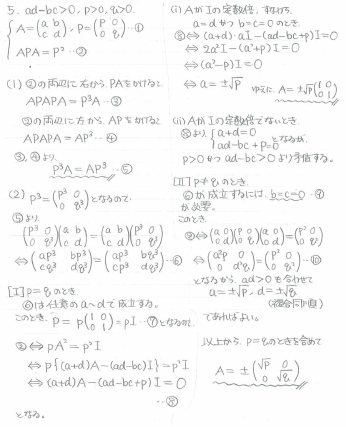 5. ad-bc>0, p>0, q>0.
A=(a b
c d), P=(p 0
0 q) …①
APA=P² …②
(1) ②の両辺に右から PAをかけると
APAPA=P³A …③
②の両辺に左から, APをかけると
APAPA=AP³ …④
③, ④より,
P³A=AP³ …⑤
(2) P³=(p³ 0
0 q³) となるので
⑤より,
(p³ 0
0 q³)(a b
c d)=(a b
c d)(p³ 0
0 q³)
⇔(ap³ bp³
cq³ dq³)=(ap³ bq³
cp³ dq³) …⑥
[I] p=qのとき,
⑥は任意のa~dで成立する。
このとき, P=p(1 0
0 1)=pI …⑦となるので,
②⇔pA²=p²I
⇔p{(a+d)A-(ad-bc)I}=p²I
⇔(a+d)A-(ad-bc+p)I=0
…⑧
となる。
(i) AがIの定数倍, すなわち,
a=dかつb=c=0のとき,
⑧⇔(a+d)·aI-(ad-bc+p)I=0
⇔2a²I-(a²+p)I=0
⇔(a²-p)I=0
⇔a=±√p ゆえに, A=±√p(1 0
0 1)
(ii) AがIの定数倍でないとき,
⑧より, {a+d=0
ad-bc+p=0 となるが,
p>0かつad-bc>0より矛盾する。
[II] p≠qのとき,
⑥が成立するには, b=c=0…⑨
が必要。
このとき,
②⇔(a 0
0 d)(p 0
0 q)(a 0
0 d)=(p² 0
0 q²)
⇔(a²p 0
0 d²q)=(p² 0
0 q²) …⑩
となるから, ad>0を合わせて
a=±√p, d=±√q
(複合同順)
であればよい。
以上から, p=qのときを含めて
A=±(√p 0
0 √q)